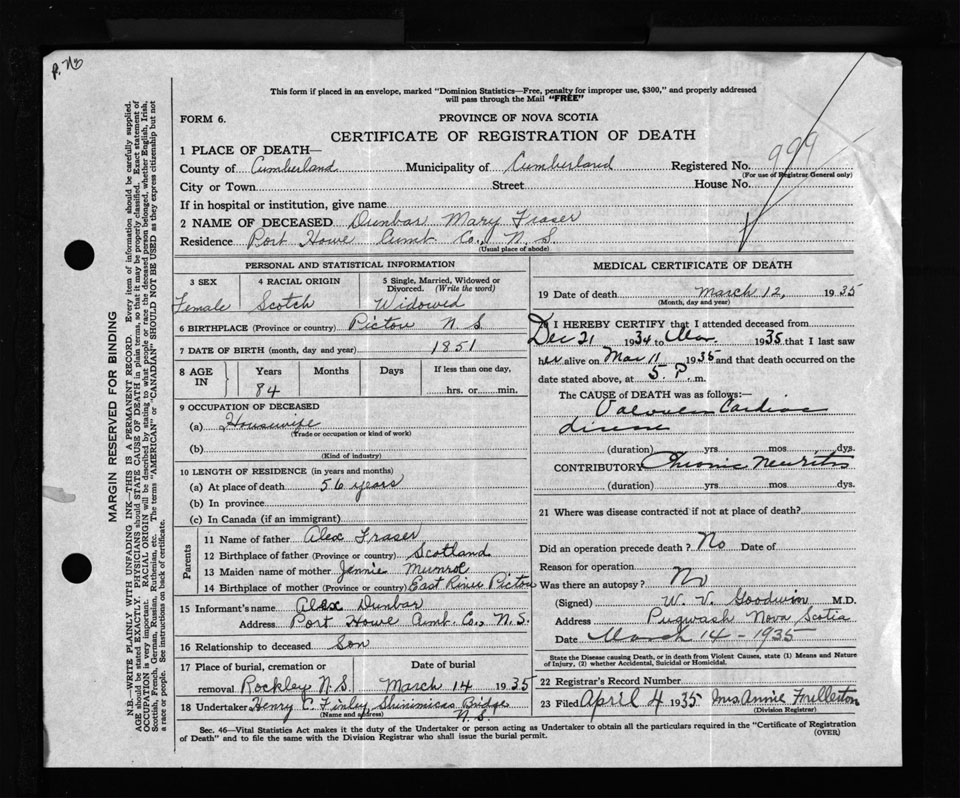 P. No
This form if placed in an envelope, marked "Dominion Statistics—Free, penalty for improper use, $300," and properly addressed
will pass through the Mail "FREE"
FORM 6.
PROVINCE OF NOVA SCOTIA
CERTIFICATE OF REGISTRATION OF DEATH
1 PLACE OF DEATH—
County of Cumberland Municipality of Cumberland Registered No. 999
(For use of Registrar General only)
City or Town Street House No.
If in hospital or institution, give name
2 NAME OF DECEASED Dunbar Mary Fraser
Residence Port Howe Cumb. Co., N. S.
(Usual place of abode)
PERSONAL AND STATISTICAL INFORMATION
3 SEX 4 RACIAL ORIGIN 5 Single, Married, Widowed or
Divorced. (Write the word)
Female Scotch Widowed
6 BIRTHPLACE (Province or country) Pictou N. S.
7 DATE OF BIRTH (month, day and year) 1851
8 AGE IN Years Months Days If less than one day,
84 hrs. or min.
9 OCCUPATION OF DECEASED
(a) Housewife
(Trade or occupation or kind of work)
(b)
(Kind of industry)
10 LENGTH OF RESIDENCE (in years and months)
(a) At place of death 56 years
(b) In province
(c) In Canada (if an immigrant)
Parents
11 Name of father Alex Fraser
12 Birthplace of father (Province or country) Scotland
13 Maiden name of mother Jennie Munroe
14 Birthplace of mother (Province or country) East River Pictou
15 Informant's name Alex Dunbar
Address Port Howe Cumb. Co., N. S.
16 Relationship to deceased Son
17 Place of burial, cremation or Date of burial
removal Rockley N. S. March 14 1935
18 Undertaker Henry C. Finley Shinimicas Bridge
(Name and address) N. S.
MEDICAL CERTIFICATE OF DEATH
19 Date of death March 12, 1935
(Month, day and year)
20 I HEREBY CERTIFY that I attended deceased from
Dec 21 1934 to Mar 1935 that I last saw
her alive on Mar 11 1935 and that death occurred on
date stated above, at 5. P. m.
The CAUSE of DEATH was as follows:—
Valvular Cardiac
disease
(duration) yrs mos dys.
CONTRIBUTORY Chronic Neuritis
(duration) yrs mos dys.
21 Where was disease contracted if not at place of death?
Did an operation precede death? No Date of
Reason for operation
Was there an autopsy? No
(Signed) W. V. Goodwin M.D.
Address Pugwash Nova Scotia
Date March 14 - 1935
State the Disease causing Death, or in death from Violent Causes, state (1) Means and Nature
of Injury, (2) whether Accidental, Suicidal or Homicidal.
22 Registrar's Record Number
23 Filed April 4 1935 Mrs Annie
(Division Registrar)
Sec. 46—Vital Statistics Act makes it the duty of the Undertaker or person acting as Undertaker to obtain all the particulars required in the "Certificate of Registration
of Death" and to file the same with the Division Registrar who shall issue the burial permit. (OVER)
MARGIN RESERVED FOR BINDING
N.B.—WRITE PLAINLY WITH UNFADING INK—THIS IS A PERMANENT RECORD. Every item of information should be carefully supplied.
AGE should be stated EXACTLY. PHYSICIANS should STATE CAUSE OF DEATH in plain terms, so that it may be properly classified. Exact statement of
OCCUPATION is very important. RACIAL ORIGIN will be described by stating to what people or race the deceased person belonged, whether English, Irish,
Scottish, French, German, Russian, Ruthenian, etc. The terms "AMERICAN" or "CANADIAN" SHOULD NOT BE USED as they express citizenship but not
a race or people. See instructions on back of certificate.